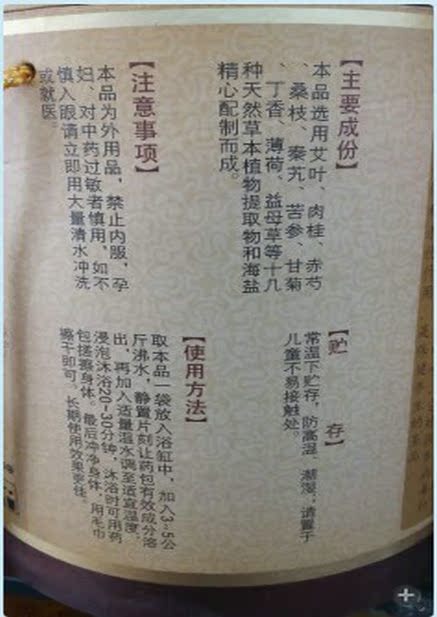 【主要成份】
本品选用艾叶、肉桂、赤芍
、桑枝、秦艽、苦参、甘菊
、丁香、薄荷、益母草等十几
种天然草本植物提取物和海盐
精心配制而成。
【注意事项】
本品为外用品，禁止内服，孕
妇、对中药过敏者慎用，如不
慎入眼请立即用大量清水冲洗
或就医。
【贮 存】
常温下贮存，防高温、潮湿；请置于
儿童不易接触处。
【使用方法】
取本品一袋放入浴缸中，加入3-5公
斤沸水，静置片刻让药包有效成分溶
出，再加入适量温水调至适宜温度。
浸泡沐浴20-30分钟，沐浴时可用药
包搓擦身体。最后冲净身体，用毛巾
擦干即可。长期使用效果更佳。